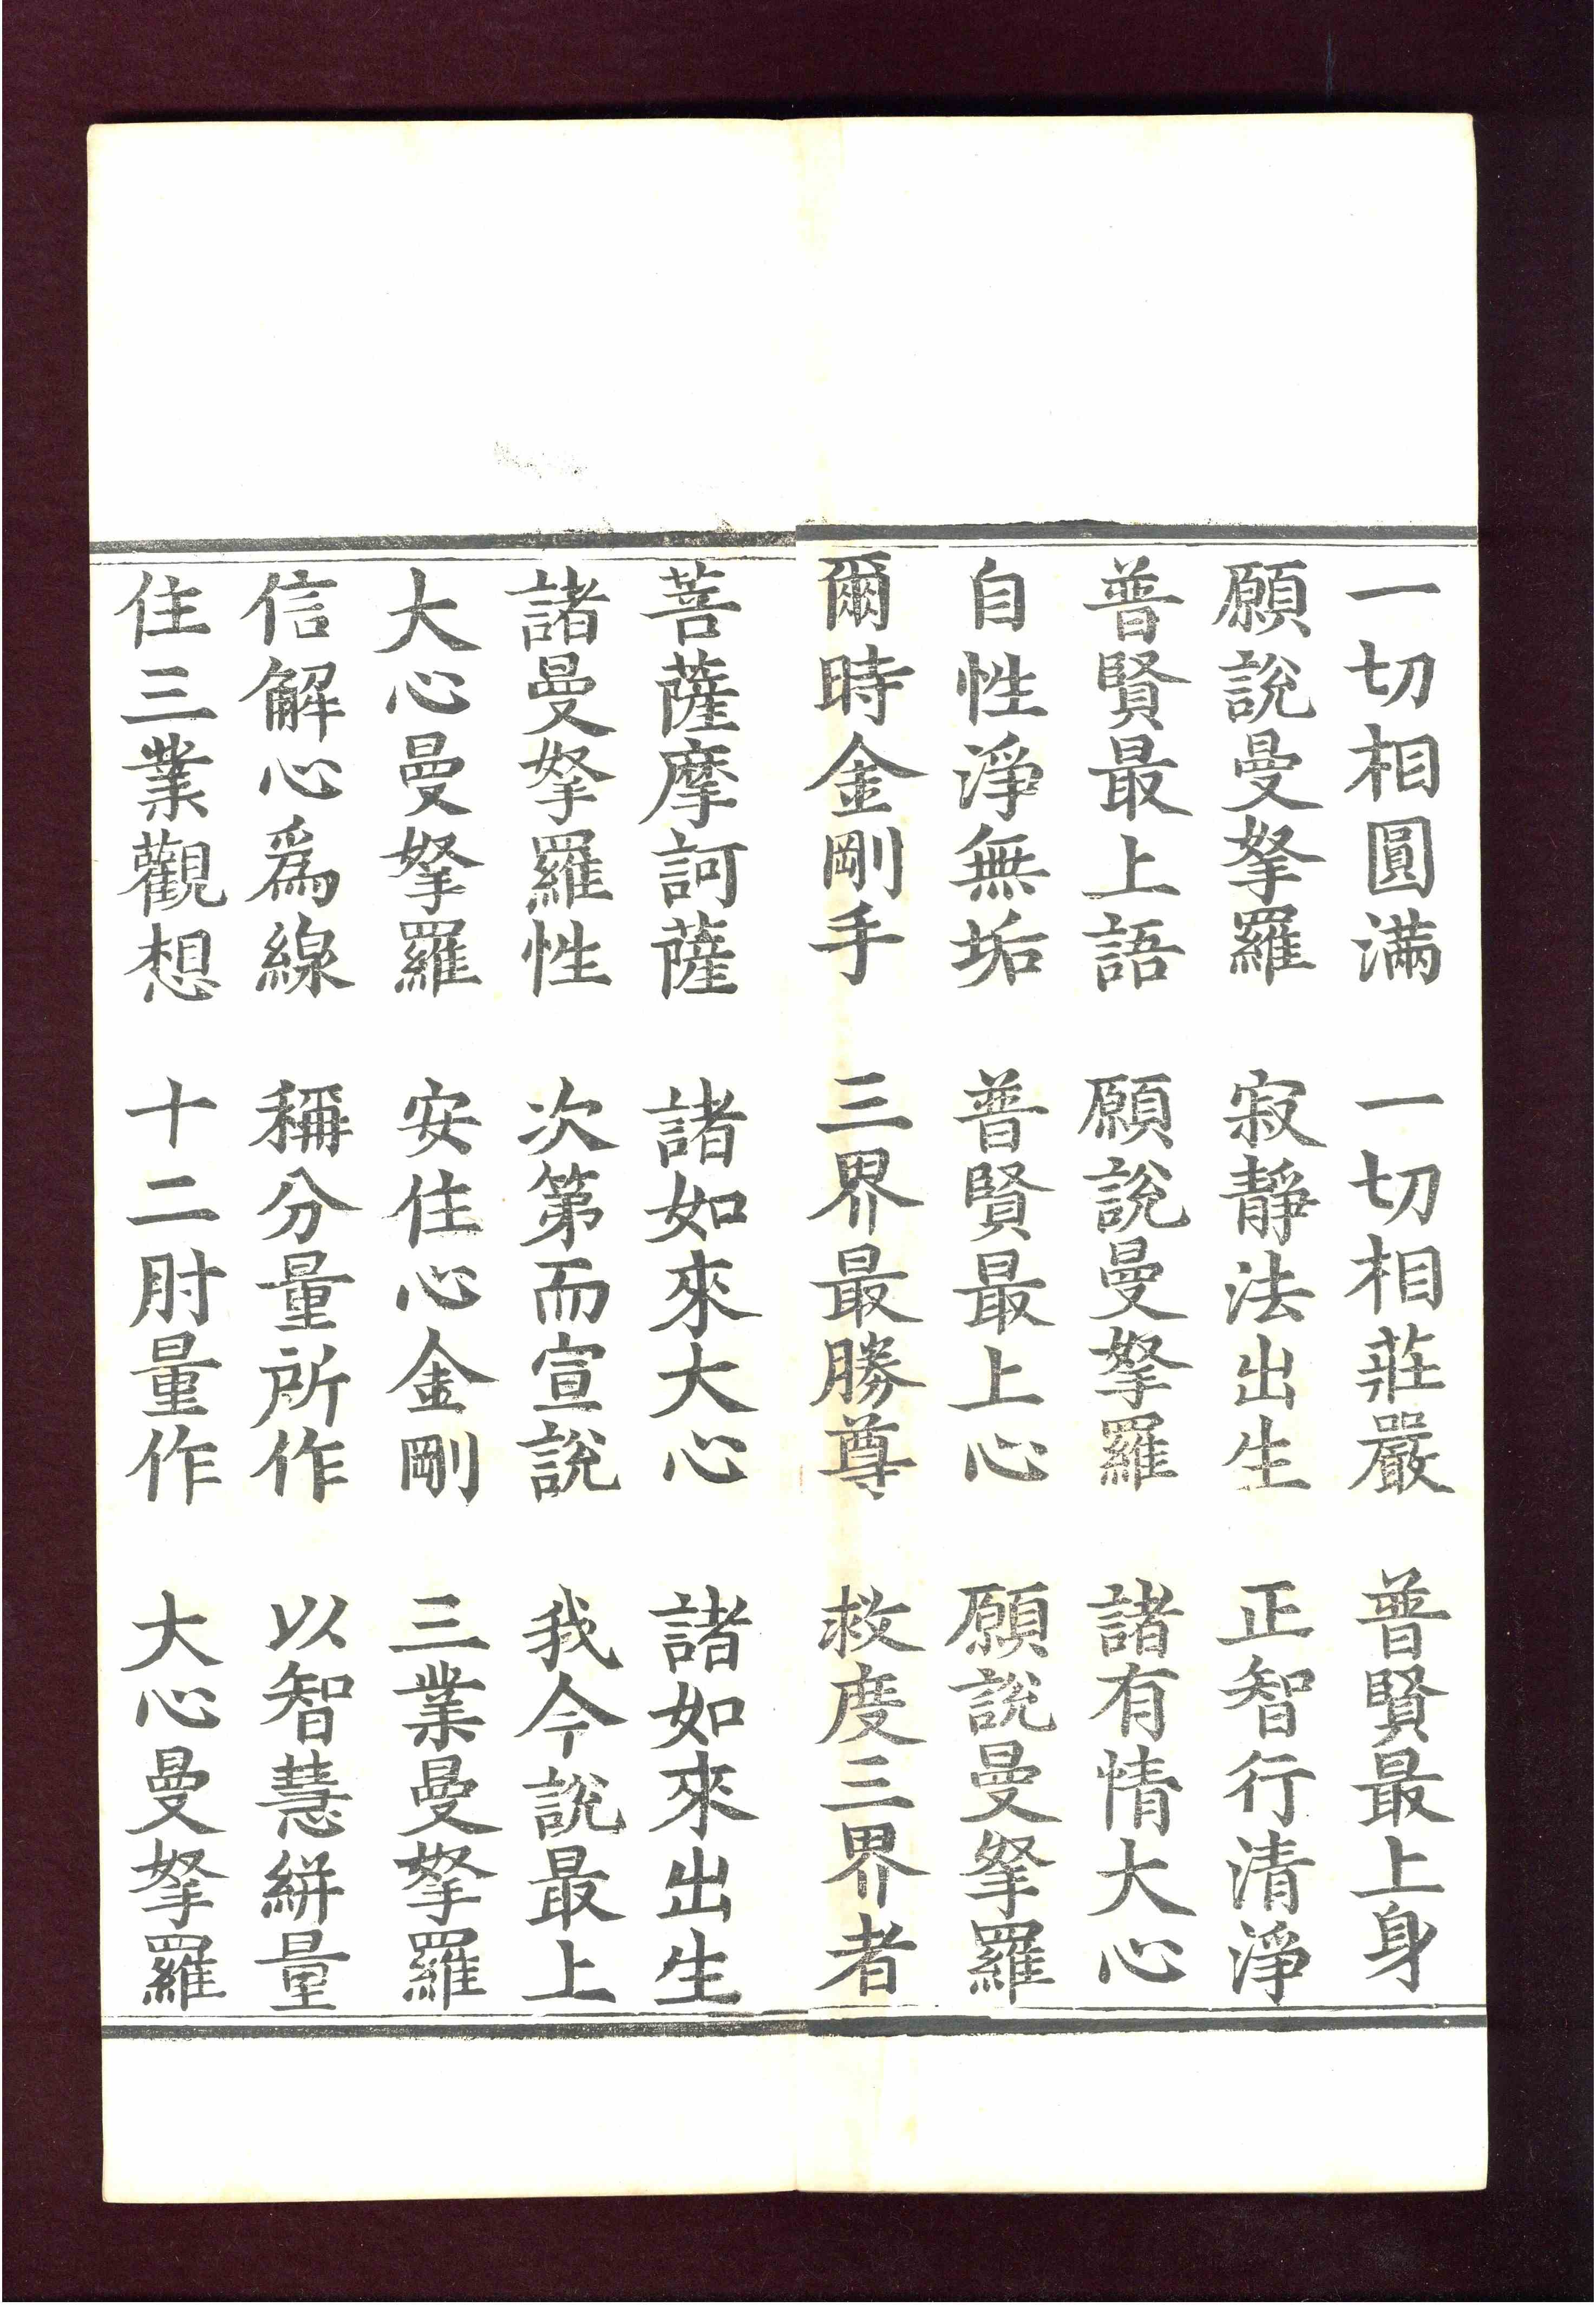 一切相圓滿　一切相莊嚴　普賢最上身
願說曼拏羅　寂靜法出生　正智行清淨
普賢最上語　願說曼拏羅　諸有情大心
自性淨無垢　普賢最上心　願說曼拏羅
爾時金剛手　三界最勝尊　救度三界者
菩薩摩訶薩　諸如來大心　諸如來出生
諸曼拏羅性　次第而宣說　我今說最上
大心曼拏羅　安住心金剛　三業曼拏羅
信解心爲線　稱分量所作　以智慧絣量
住三業觀想　十二肘量作　大心曼拏羅